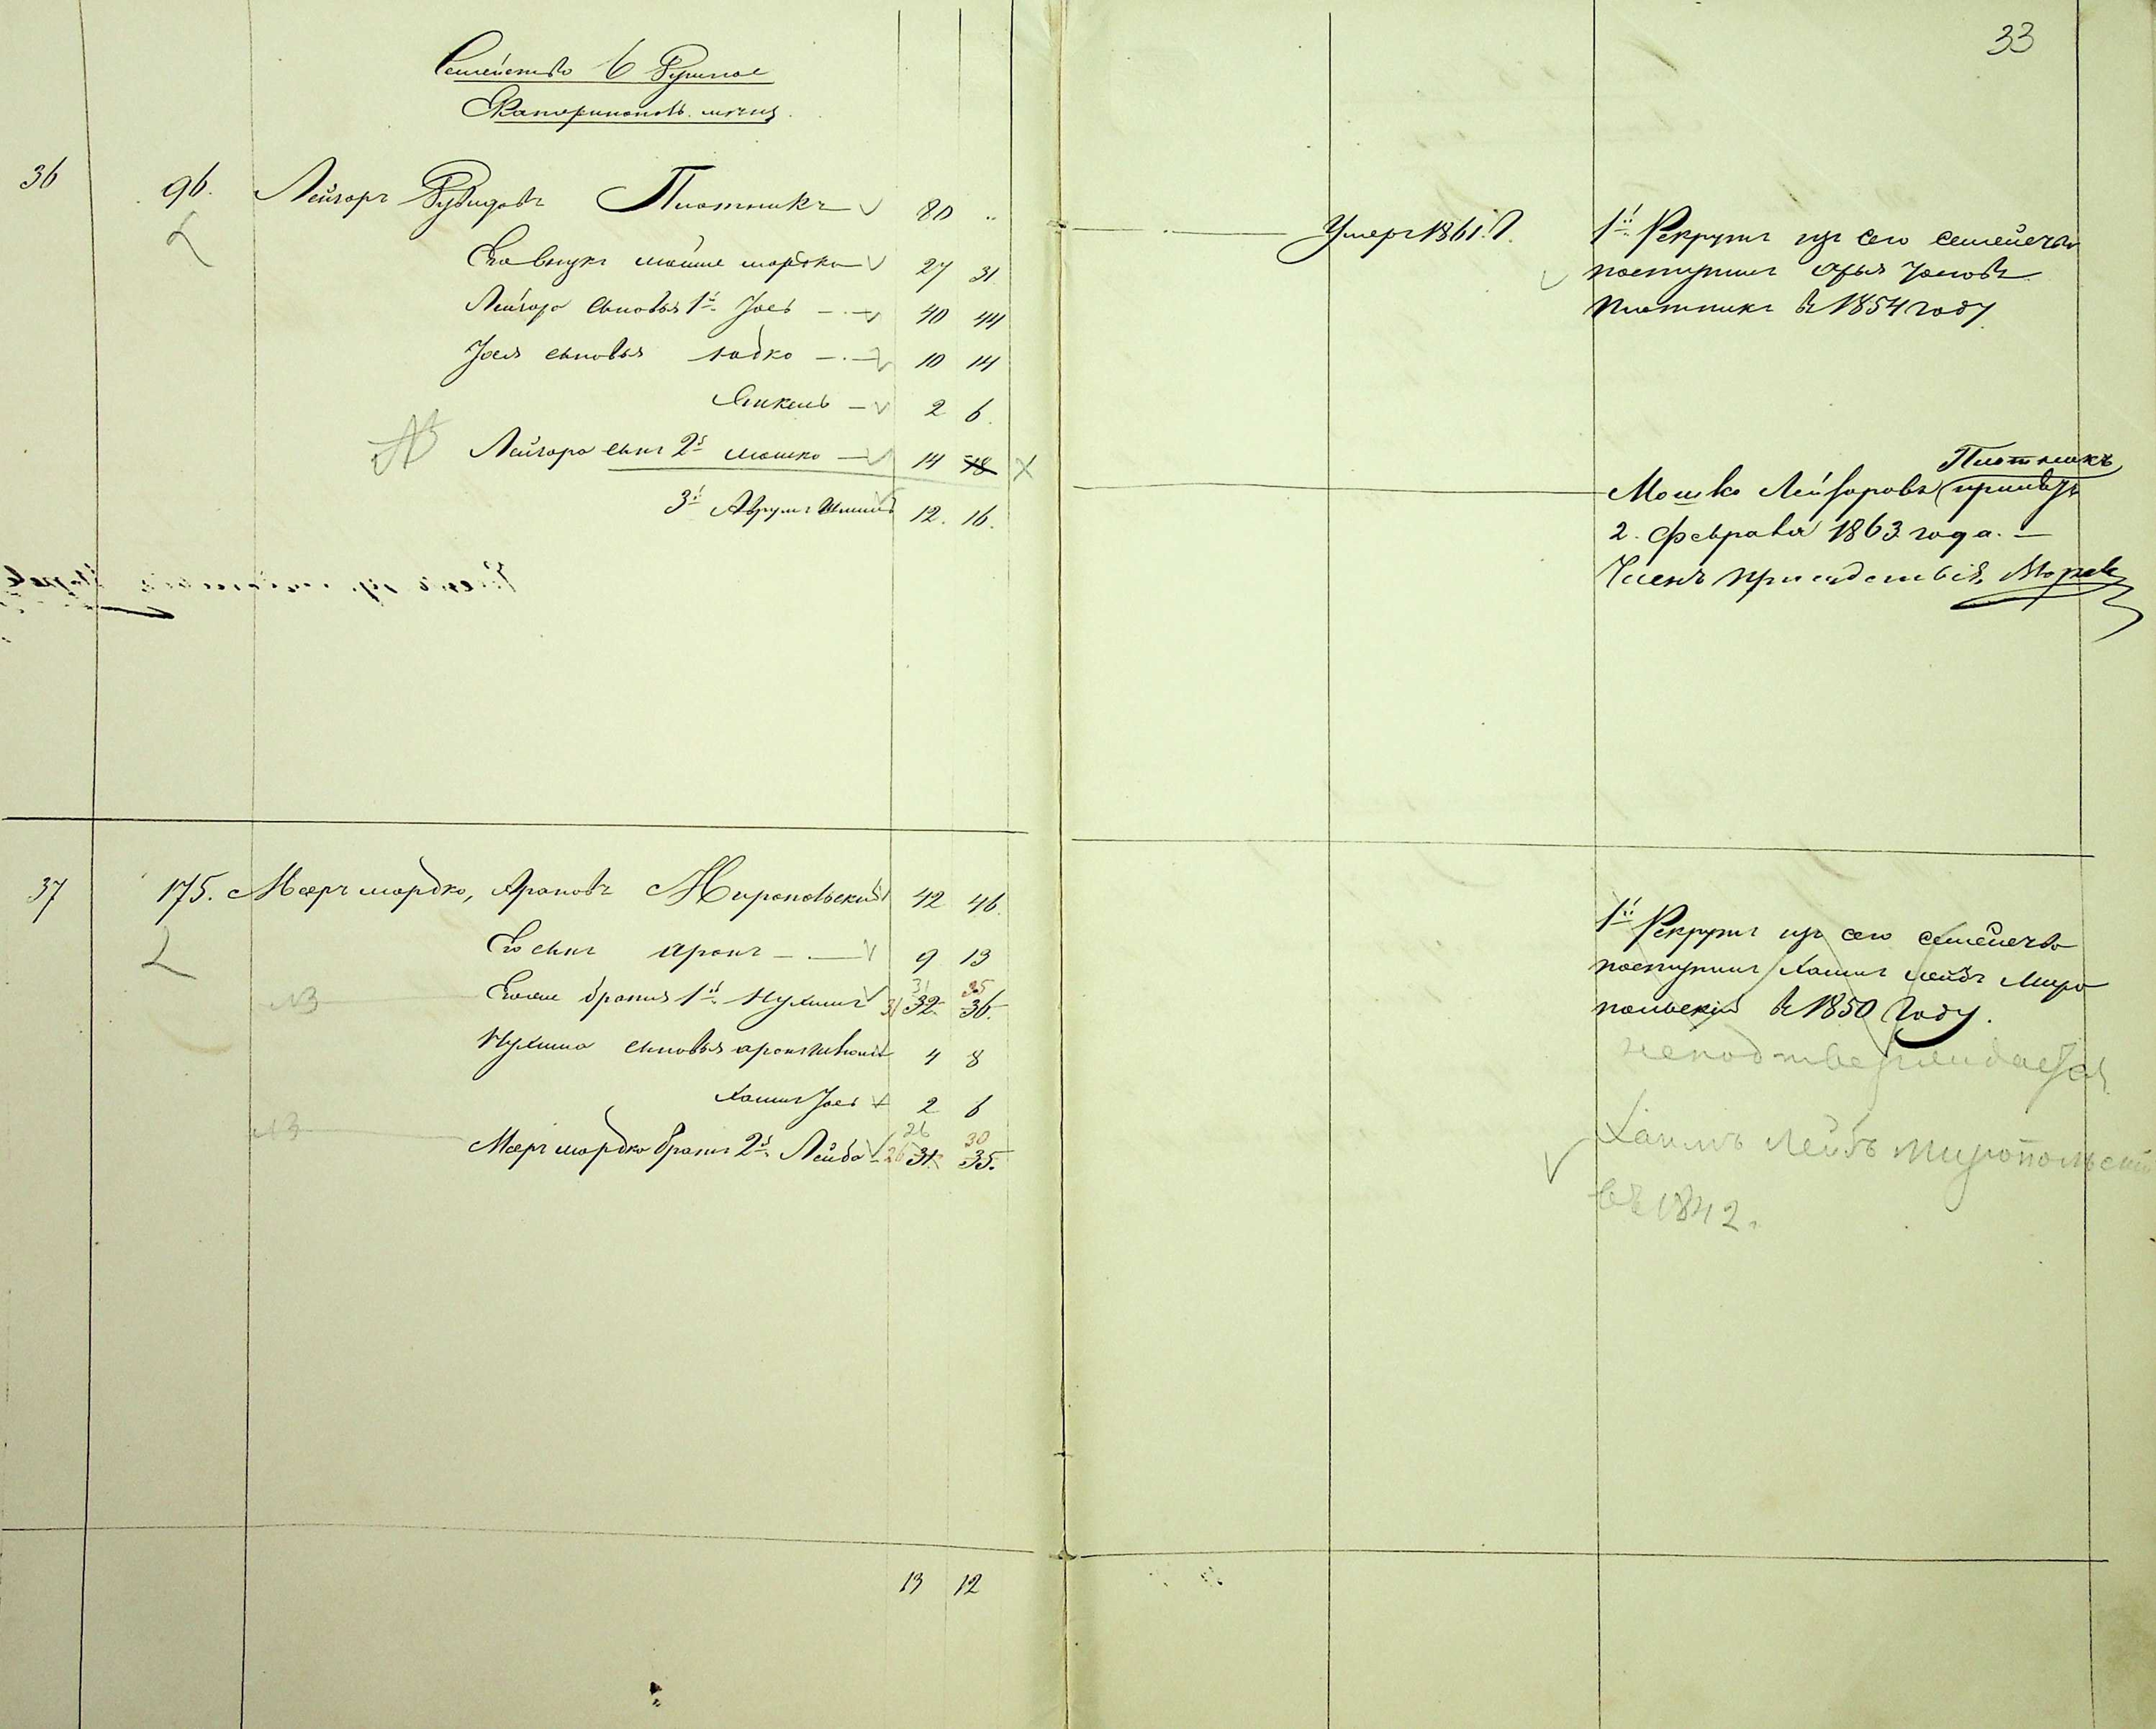 33
Семейство 6 Душное
Екатеринополь. мѣщ.
36 96. Лейзоръ Дувидовъ Плотникъ 80 „
Его внукъ Мошие Мордко 27 31
Лейзора сыновья 1й Іось 40 44
Іося сыновья Іодко 10 14
Янкель 2 6.
Лейзора сынъ 2й Мошко 14 18
3й Аврумъ 12. 16.
Умеръ 1861. г.
1й Рекрутъ изъ сего семейства
поступилъ Арья Іосовъ
Плотникъ въ 1854 году
Плотникъ
Мошко Лейзоровъ принятъ
2. Февраля 1863 года.
Членъ присудствія
37 175. Мееръ Мордко, Ароновъ Миропольский 42 46.
Его сынъ Аронъ 9 13
31 35
Его же братья 1й Нухимъ 31 32. 36.
Нухима сыновья Аронъ 4 8
Хаимъ Іось 2 6
26 30
Меера Мордко братъ 2й Лейба 26 31. 35.
1й Рекрутъ изъ сего семейства
поступилъ Хаимъ Лейбъ Миро
польскій въ 1850 году.
неподтверждается
Хаимъ Лейбъ Миропольскій
въ 1842.
13 12